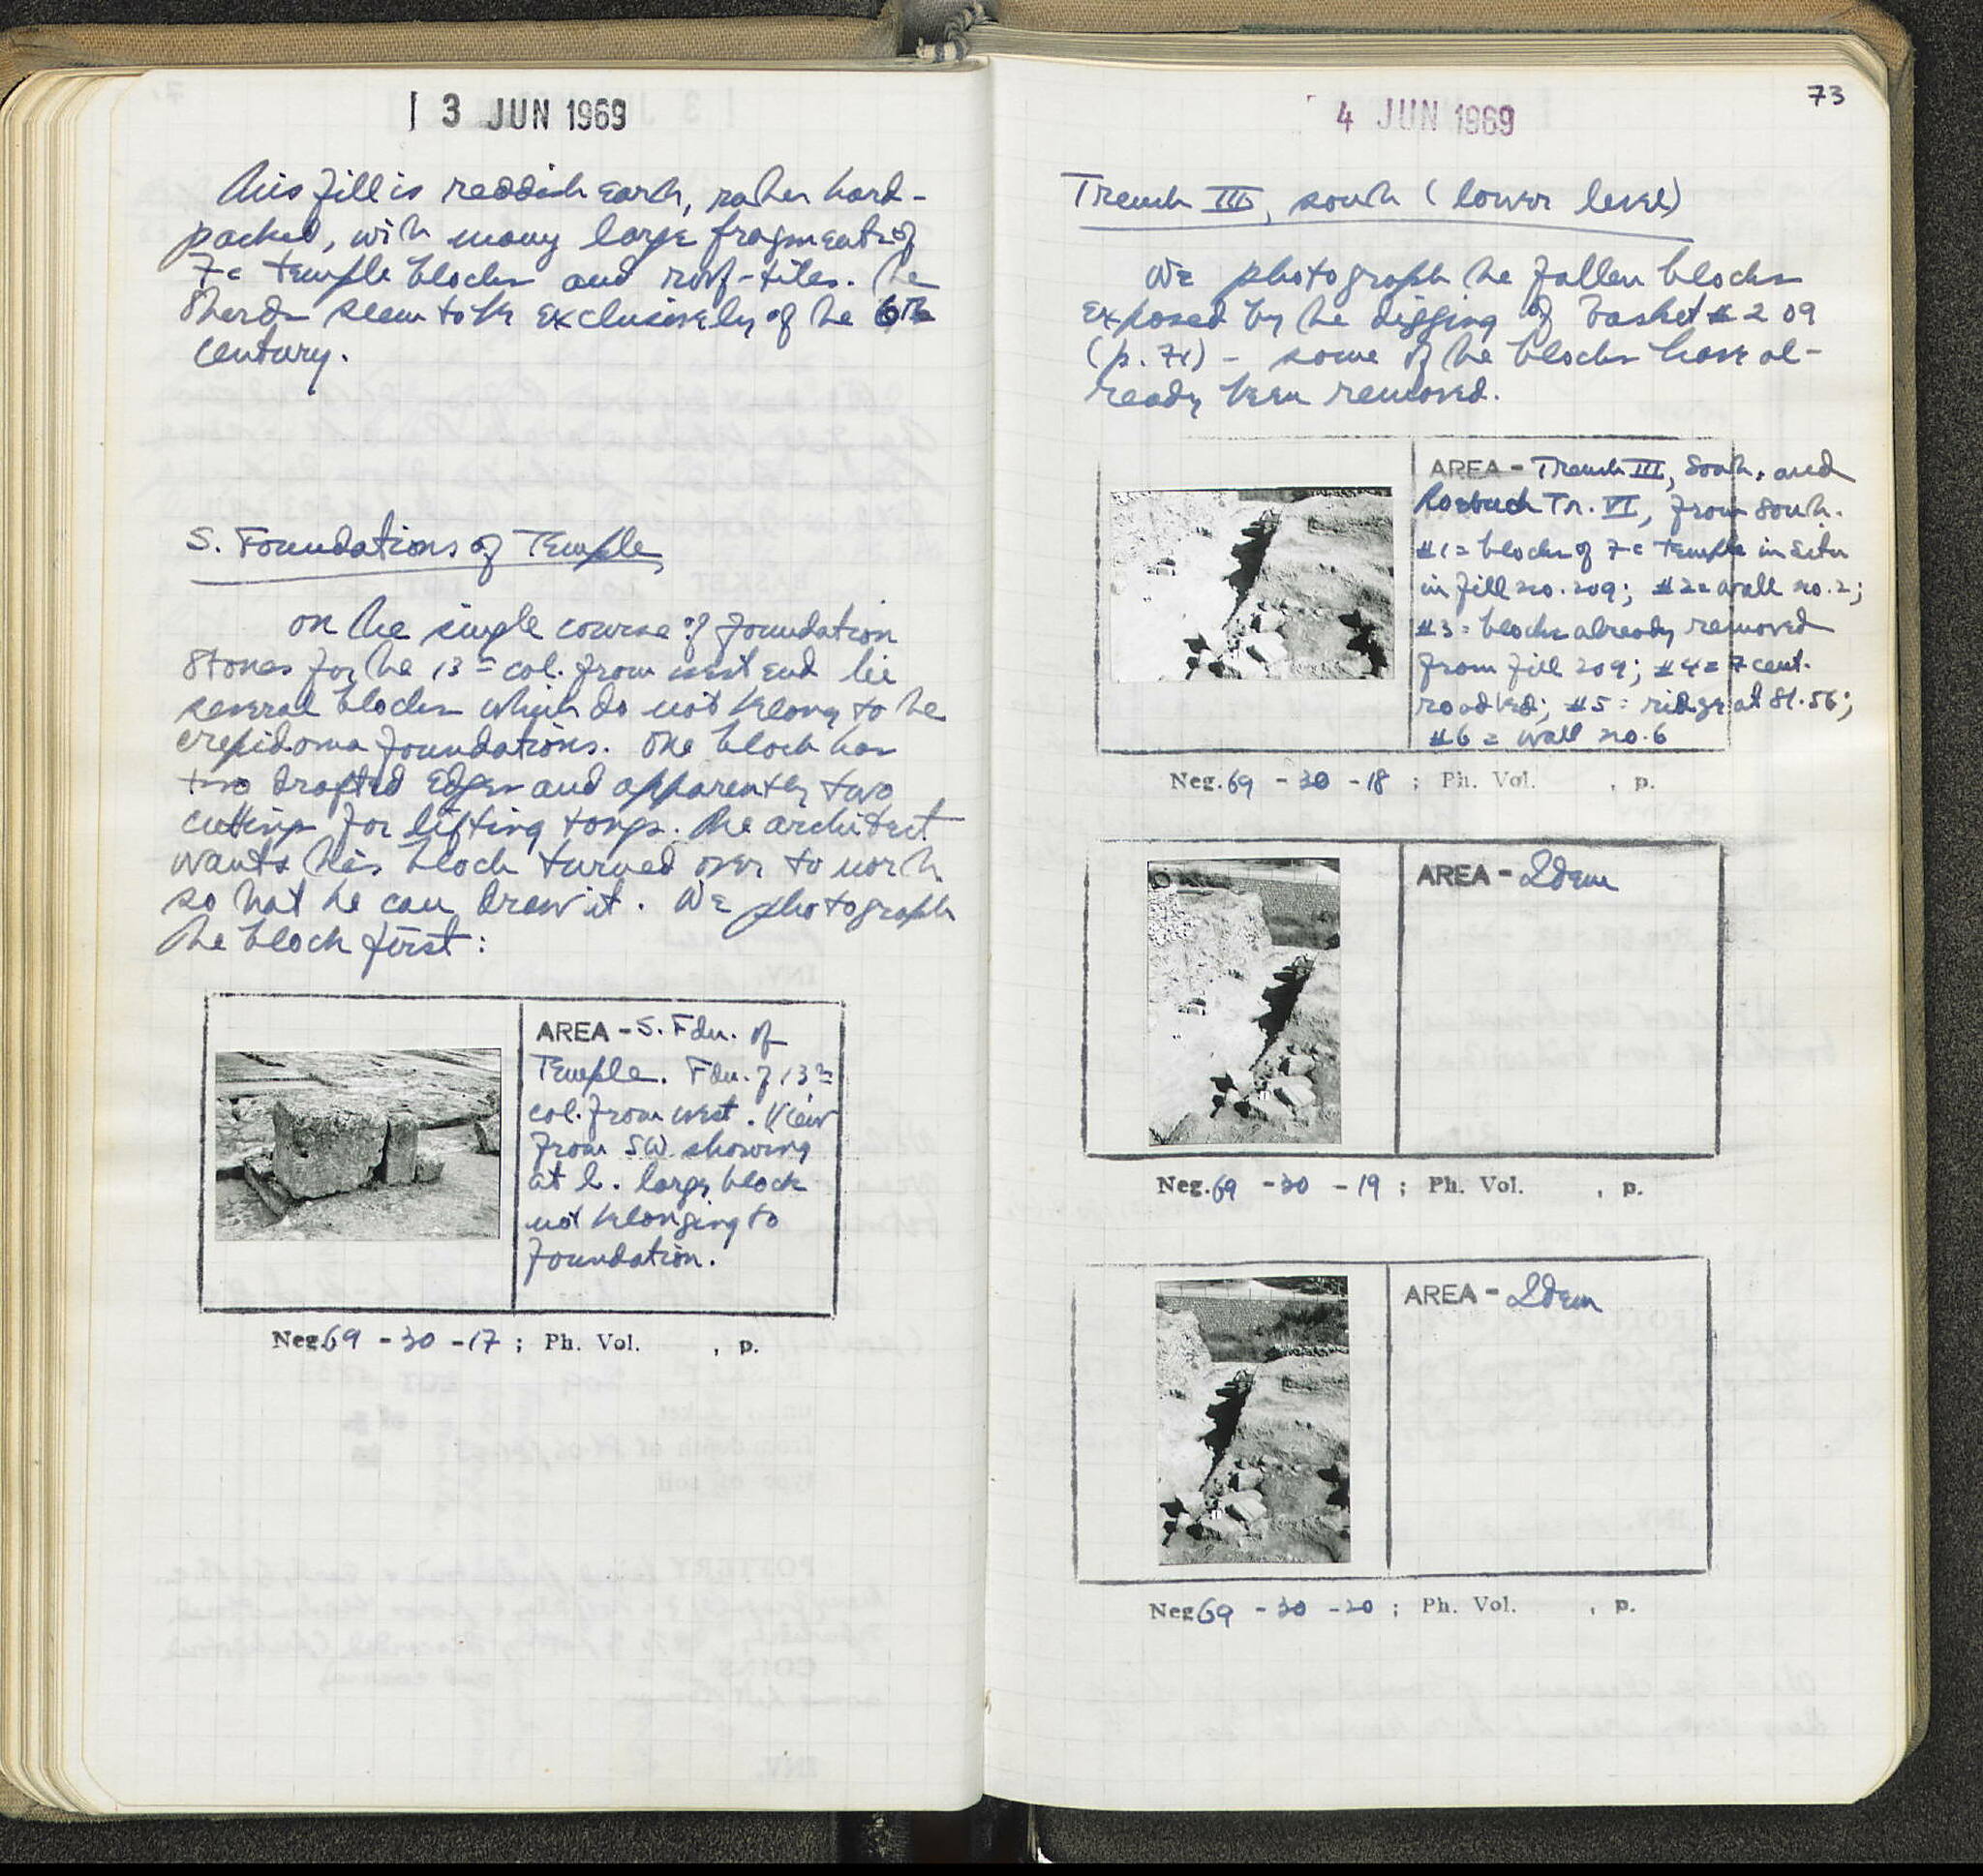 3 JUN 1969
This fill is reddish earth, rather hard-
packed, with many large fragments of
7c temple blocks and roof-tiles. The
sherds seem to be exclusively of the 6th
century.
S. Foundations of Temple
On the single course of foundation
stones for the 13th col. from west end lie
several blocks which do not belong to the
crepidoma foundations. One block has
two drafted edges and apparently two
cuttings for lifting tongs. The architect
wants this block turned over to north
so that he can draw it. We photograph
the block first:
AREA - S. Fdn. of
Temple. Fdn. of 13th
col. from west. View
from SW showing
at l. large block
not belonging to
foundation.
Neg. 69 - 30 - 17 ; Ph. Vol. , p.
73
4 JUN 1969
Trench III, south (lower level)
We photograph the fallen blocks
exposed by the digging of basket #209
(p. 71) - some of the blocks have al-
ready been removed.
AREA - Trench III, South, and
Roebuck Tr. VI, from south.
#1 = blocks of 7c temple in situ
in fill no. 209; #2 = wall no. 2;
#3 = blocks already removed
from fill 209; #4 = 7 cent.
roadbed; #5 = ridge at 81.56;
#6 = wall no. 6
Neg. 69 - 30 - 18 ; Ph. Vol. , p.
AREA - Idem
Neg. 69 - 30 - 19 ; Ph. Vol. , p.
AREA - Idem
Neg 69 - 30 - 20 ; Ph. Vol. , p.